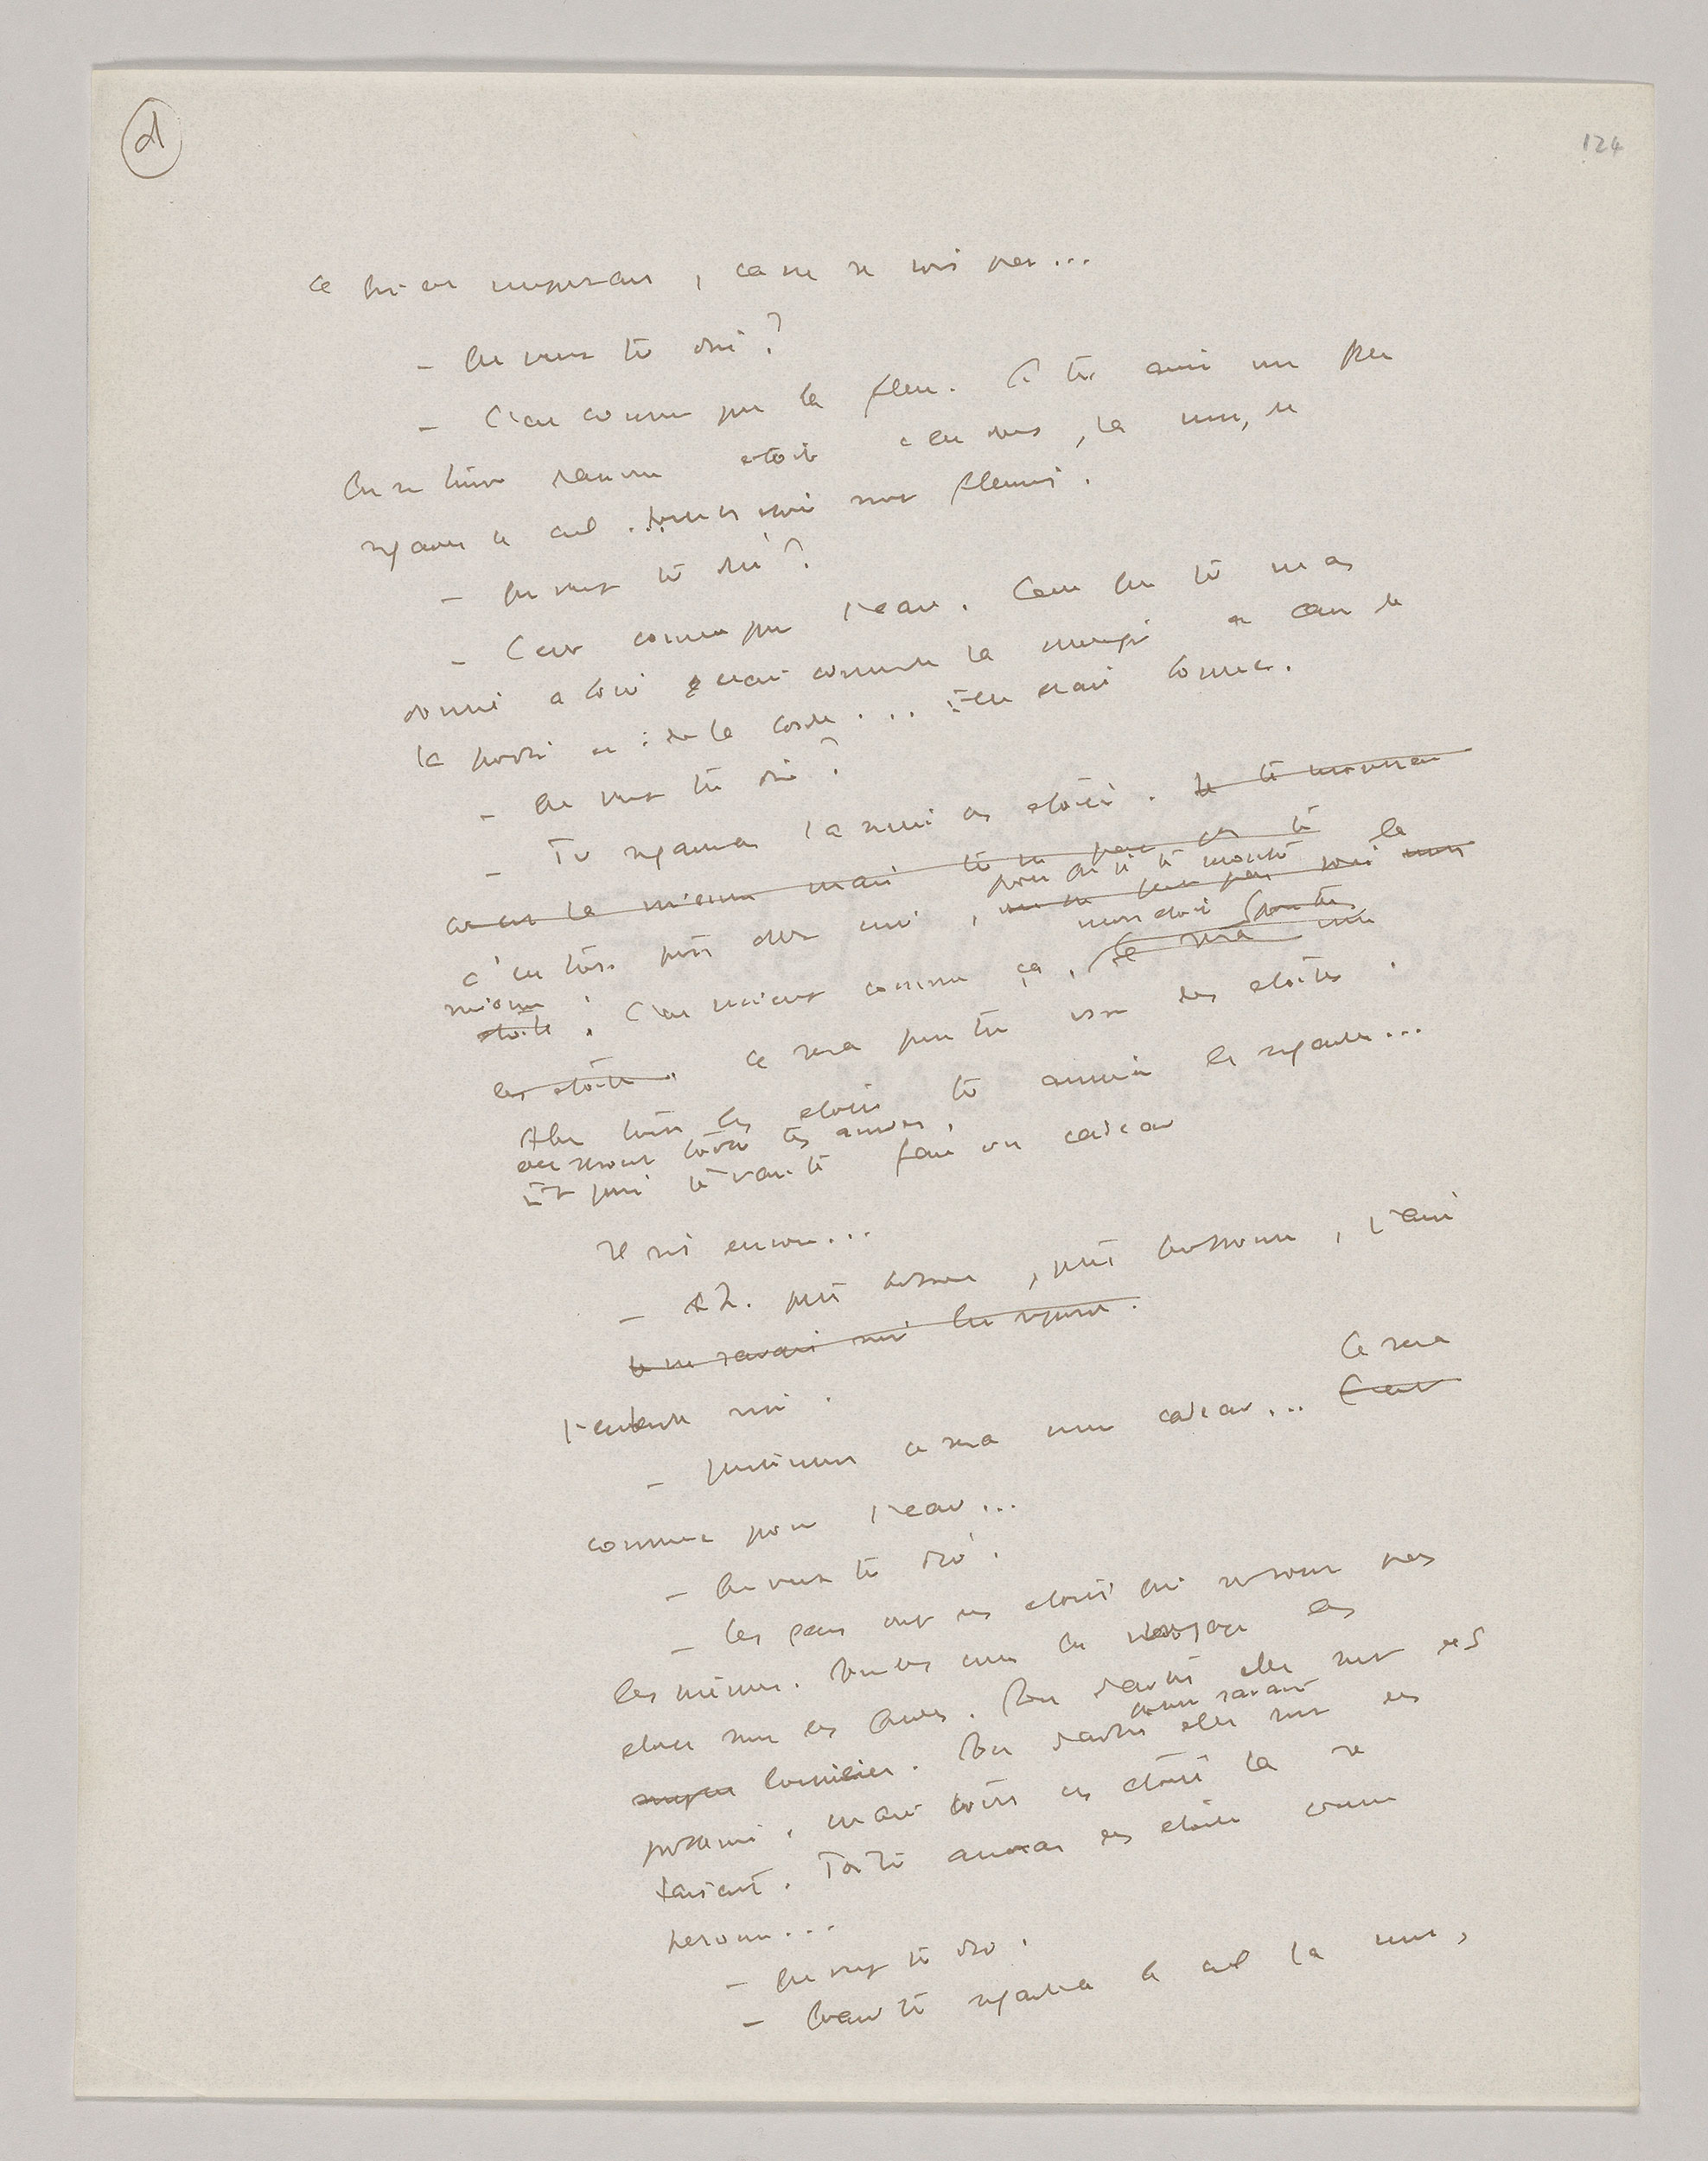 d
124
ce qui est important, ça ne se voit pas...
– Que veux tu dire ?
– C'est comme pour la fleur. Si tu aimes une fleur
qui se trouve dans une étoile c'est doux, la nuit, de
regarder le ciel. Toutes les étoiles sont fleuries.
– Que veux tu dire ?
– C'est comme pour l'eau. Celle que tu m'as
donné à boire était comme une musique à cause de
la poulie et de la corde... elle était bonne.
– Que veux tu dire ?
– Tu regarderas la nuit les étoiles. Je te montrerai
où est la mienne mais tu ne peux pas
c'est trop petit chez moi, pour que je te montre la
mienne
étoile. C'est mieux comme ça. mon étoile sera une
les étoiles. Ce sera pour toi une des étoiles.
Alors toutes les étoiles tu aimeras les regarder...
elles seront toutes tes amies.
Et puis je vais te faire un cadeau
Il rit encore...
– Ah. petit bonhomme, petit bonhomme, j'aime
Je ne savais rien que répondre.
l'entendre rire.
– Justement ce sera mon cadeau... Ce sera
C'est
comme pour l'eau...
– Que veux tu dire.
– Les gens ont des étoiles qui ne sont pas
les mêmes. Pour les uns qui voyagent les
étoiles sont des guides. Pour d'autres elles sont des
lumières. Pour d'autres savants elles sont des
problèmes. mais toutes ces étoiles là se
taisent. Toi tu auras des étoiles comme
personne...
– Que veux tu dire.
– Quand tu regarderas le ciel la nuit,